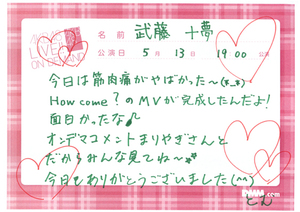 AKB48 LIVE!! ON DEMAND
名前 武藤 十夢
公演日 5月13日 19:00 公演
今日は筋肉痛がやばかった〜(*_*)
How come?のMVが完成したんだよ!
面白かったな♪
オンデマコメントまりやぎさんと
だからみんな見てね〜
今日もありがとうございました(^^)
とむ
DMM.com